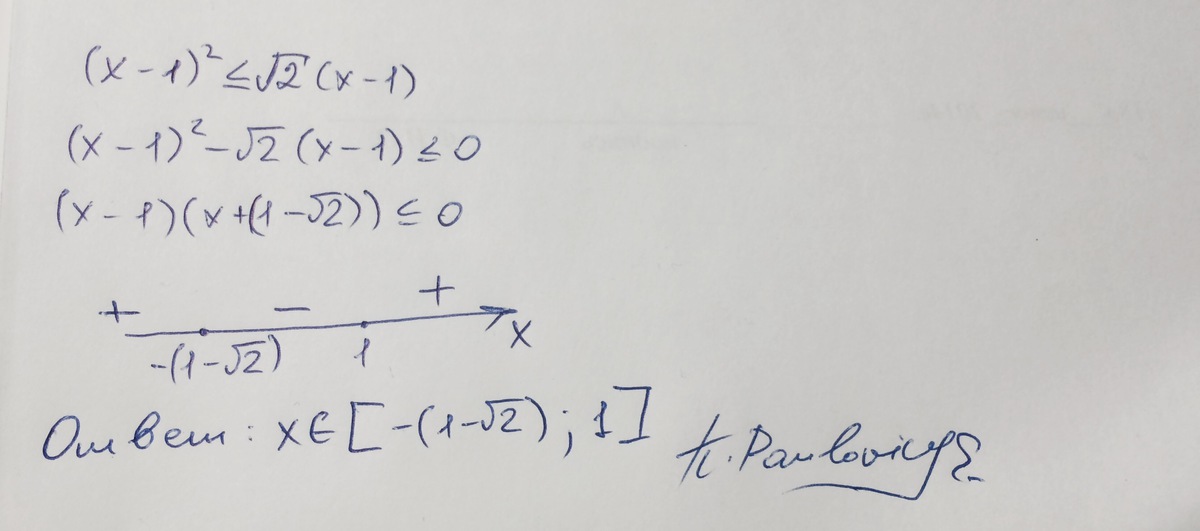 (x - 1)² ≤ √2 (x - 1)
(x - 1)² - √2 (x - 1) ≤ 0
(x - 1)(x + (1 - √2)) ≤ 0
+ - +
-(1 - √2) 1 x
Ответ: x ∈ [-(1 - √2); 1]